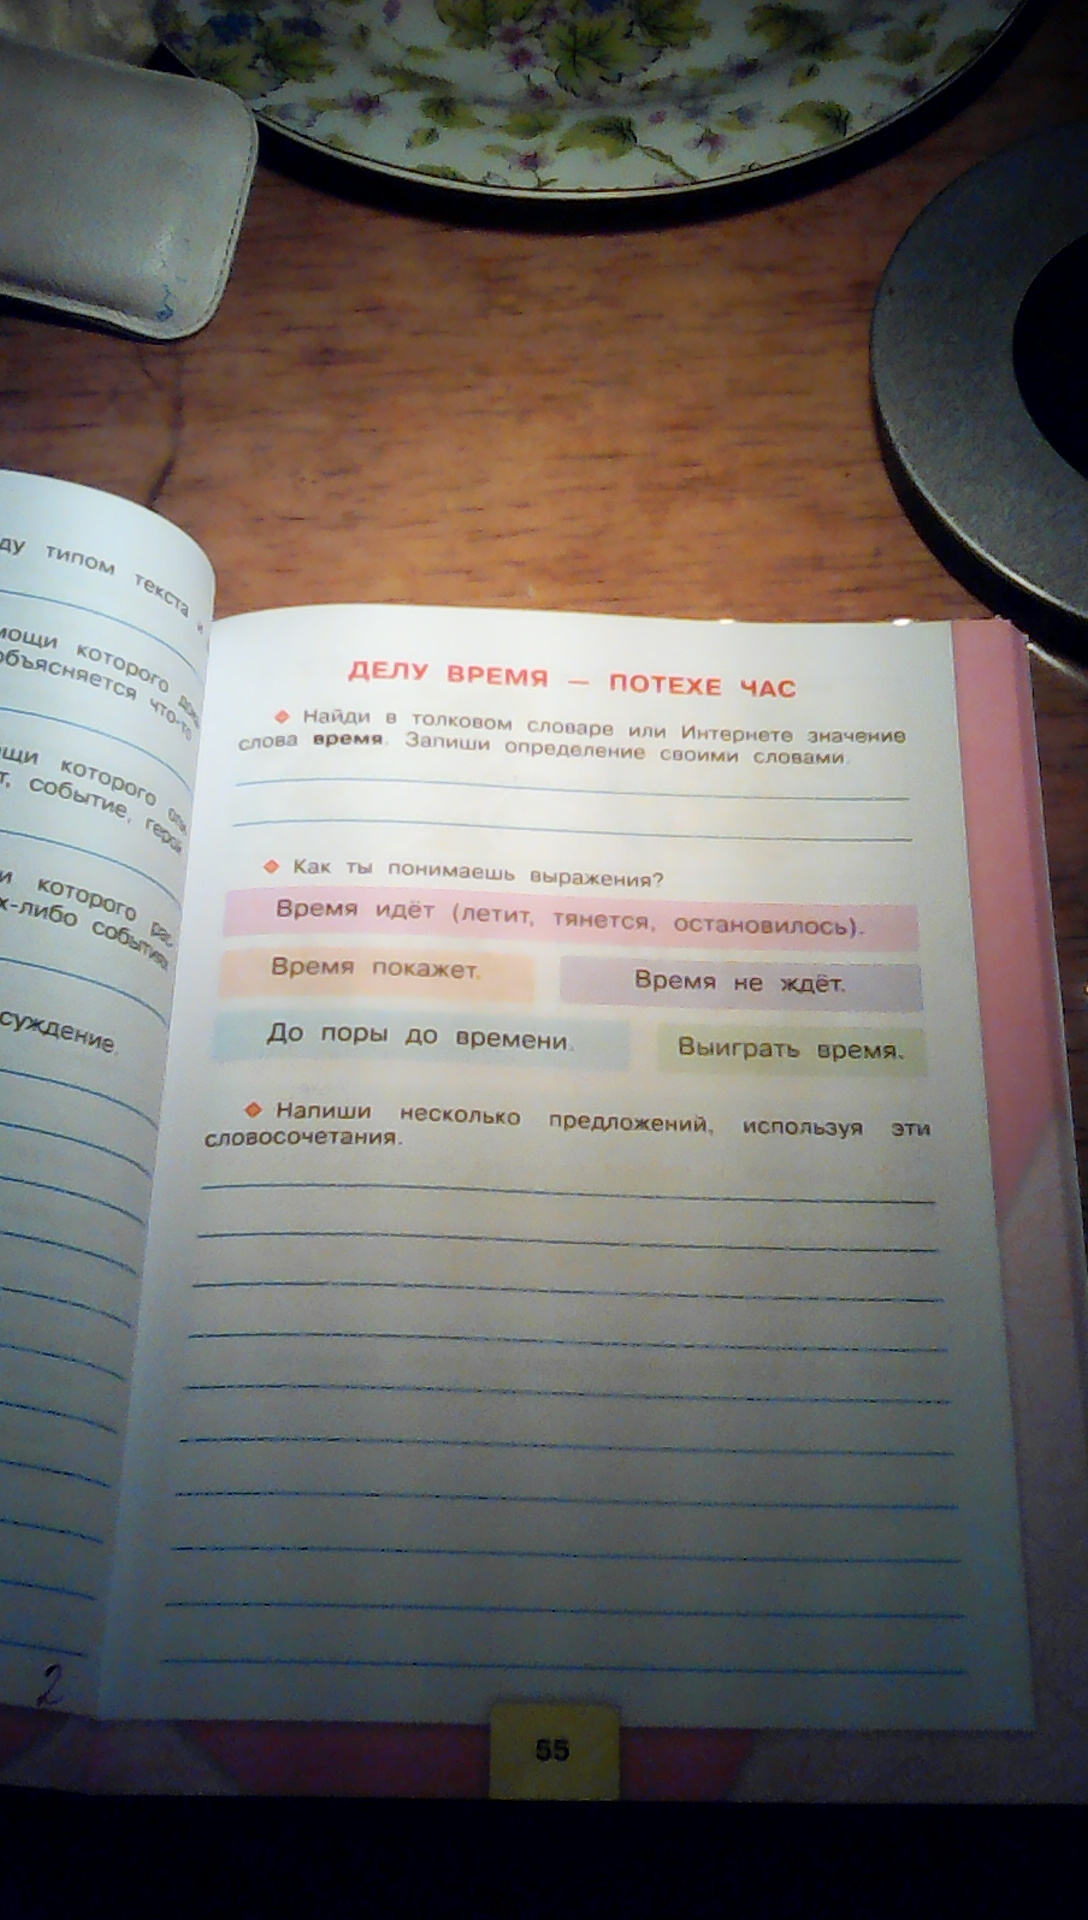 ду типом текста и
мощи которого дока
объясняется что-то
ощи которого
т, событие, герой
и которого рас
х-либо событиях
суждение.
2
ДЕЛУ ВРЕМЯ — ПОТЕХЕ ЧАС
Найди в толковом словаре или Интернете значение
слова время. Запиши определение своими словами.
Как ты понимаешь выражения?
Время идёт (летит, тянется, остановилось).
Время покажет.
Время не ждёт.
До поры до времени.
Выиграть время.
Напиши несколько предложений, используя эти
словосочетания.
55